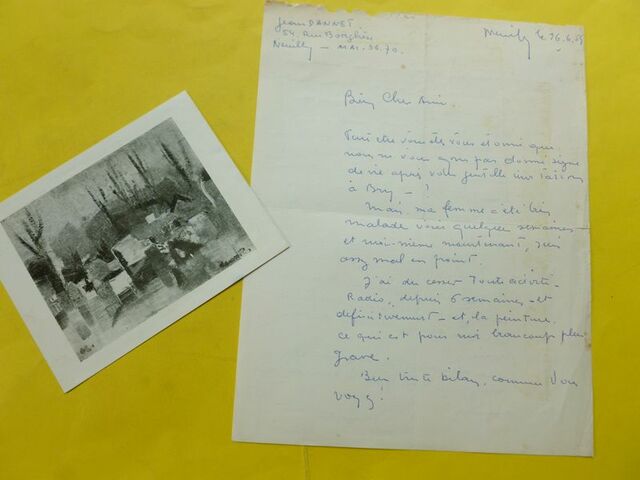 Jean DANNET
54, Rue Borghèse
Neuilly - MAI. 36.70.
Neuilly le 26.6.55
Bien Cher Ami.
Peut être vous êtes vous étonné que
nous ne vous ayons pas donné signe
de vie après votre gentille invitation
à Bry - ?
Mais, ma femme a été très
malade voici quelques semaines -
et moi-même maintenant, suis
assez mal en point.
J'ai dû cesser toute activité -
Radio, depuis 6 semaines - et
définitivement - et, la peinture.
ce qui est pour moi beaucoup plus
grave.
Bien triste bilan, comme vous
voyez!